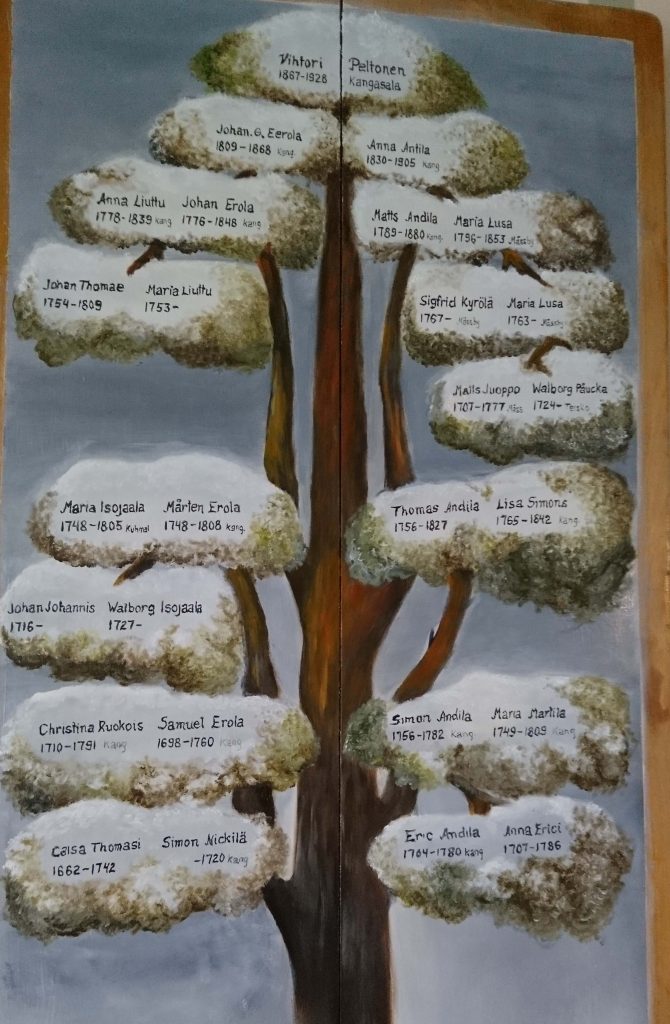 Vihtori Peltonen
1867-1928 Kangasala
Johan. G. Eerola
1809-1868 Kang.
Anna Antila
1830-1905 Kang
Anna Liuttu Johan Erola
1778-1839 Kang 1776-1848 Kang
Matts Andila Maria Lusa
1789-1880 Kang. 1796-1853 Mässby
Johan Thomae Maria Liuttu
1754-1809 1753-
Sigfrid Kyrölä Maria Lusa
1767- Mässby 1763- Mässby
Matts Juoppo Walborg Påucka
1707-1777 Mäss 1724- Teisko
Maria Isojaala Mårten Erola
1748-1805 Kuhmal 1748-1808 Kang.
Thomas Andila Lisa Simons
1756-1827 1765-1842 Kang
Johan Johannis Walborg Isojaala
1716- 1727-
Christina Ruokois Samuel Erola
1710-1791 Kang 1698-1760 Kang
Simon Andila Maria Martila
1756-1782 Kang. 1749-1809 Kang
Caisa Thomasi Simon Nickilä
1662-1742 -1720 Kang
Eric Andila Anna Erici
1704-1780 Kang 1707-1786